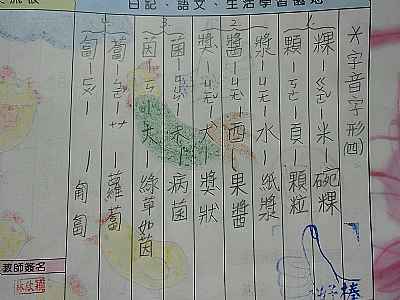 日記、語文、生活學習園地
*字音字形(四)
1. 粿-ㄍㄨㄛˇ-米-碗粿
顆-ㄎㄜ-頁-顆粒
2. 漿-ㄐㄧㄤ-水-紙漿
醬-ㄐㄧㄤˋ-酉-果醬
獎-ㄐㄧㄤˇ-犬-獎狀
3. 菌-ㄐㄩㄣˋ-禾-病菌
茵-ㄧㄣ-大-綠草如茵
4. 蔔-ㄅㄛ˙-艹-蘿蔔
匐-ㄈㄨˊ-匍匐
教師簽名
好棒